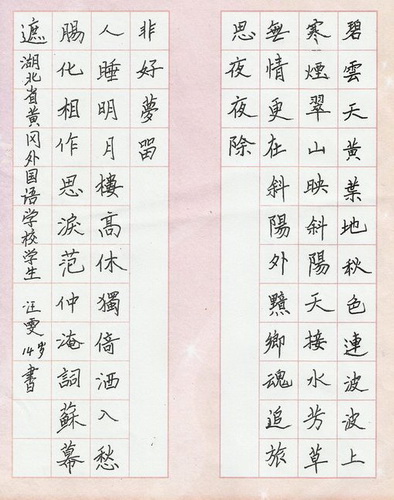 碧雲天黄葉地秋色連波波上
寒煙翠山映斜陽天接水芳草
無情更在斜陽外黯鄉魂追旅
思夜夜除
非好夢留
人睡明月樓高休獨倚洒入愁
腸化相作思淚范仲淹詞蘇幕
遮 湖北省黄冈外国语学校学生 汪雯14岁書